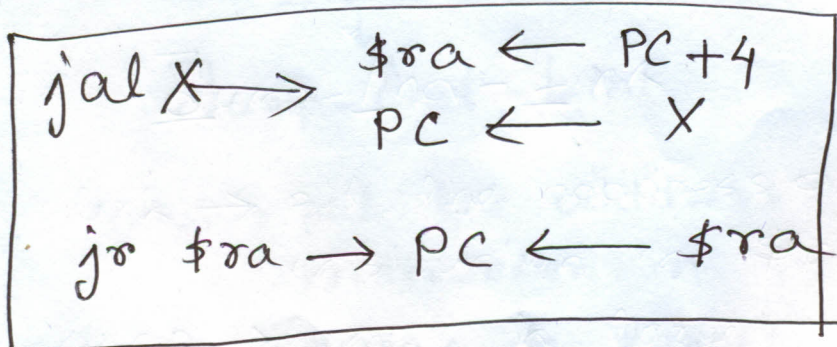 jal X → $ra ← PC+4
PC ← X
jr $ra → PC ← $ra